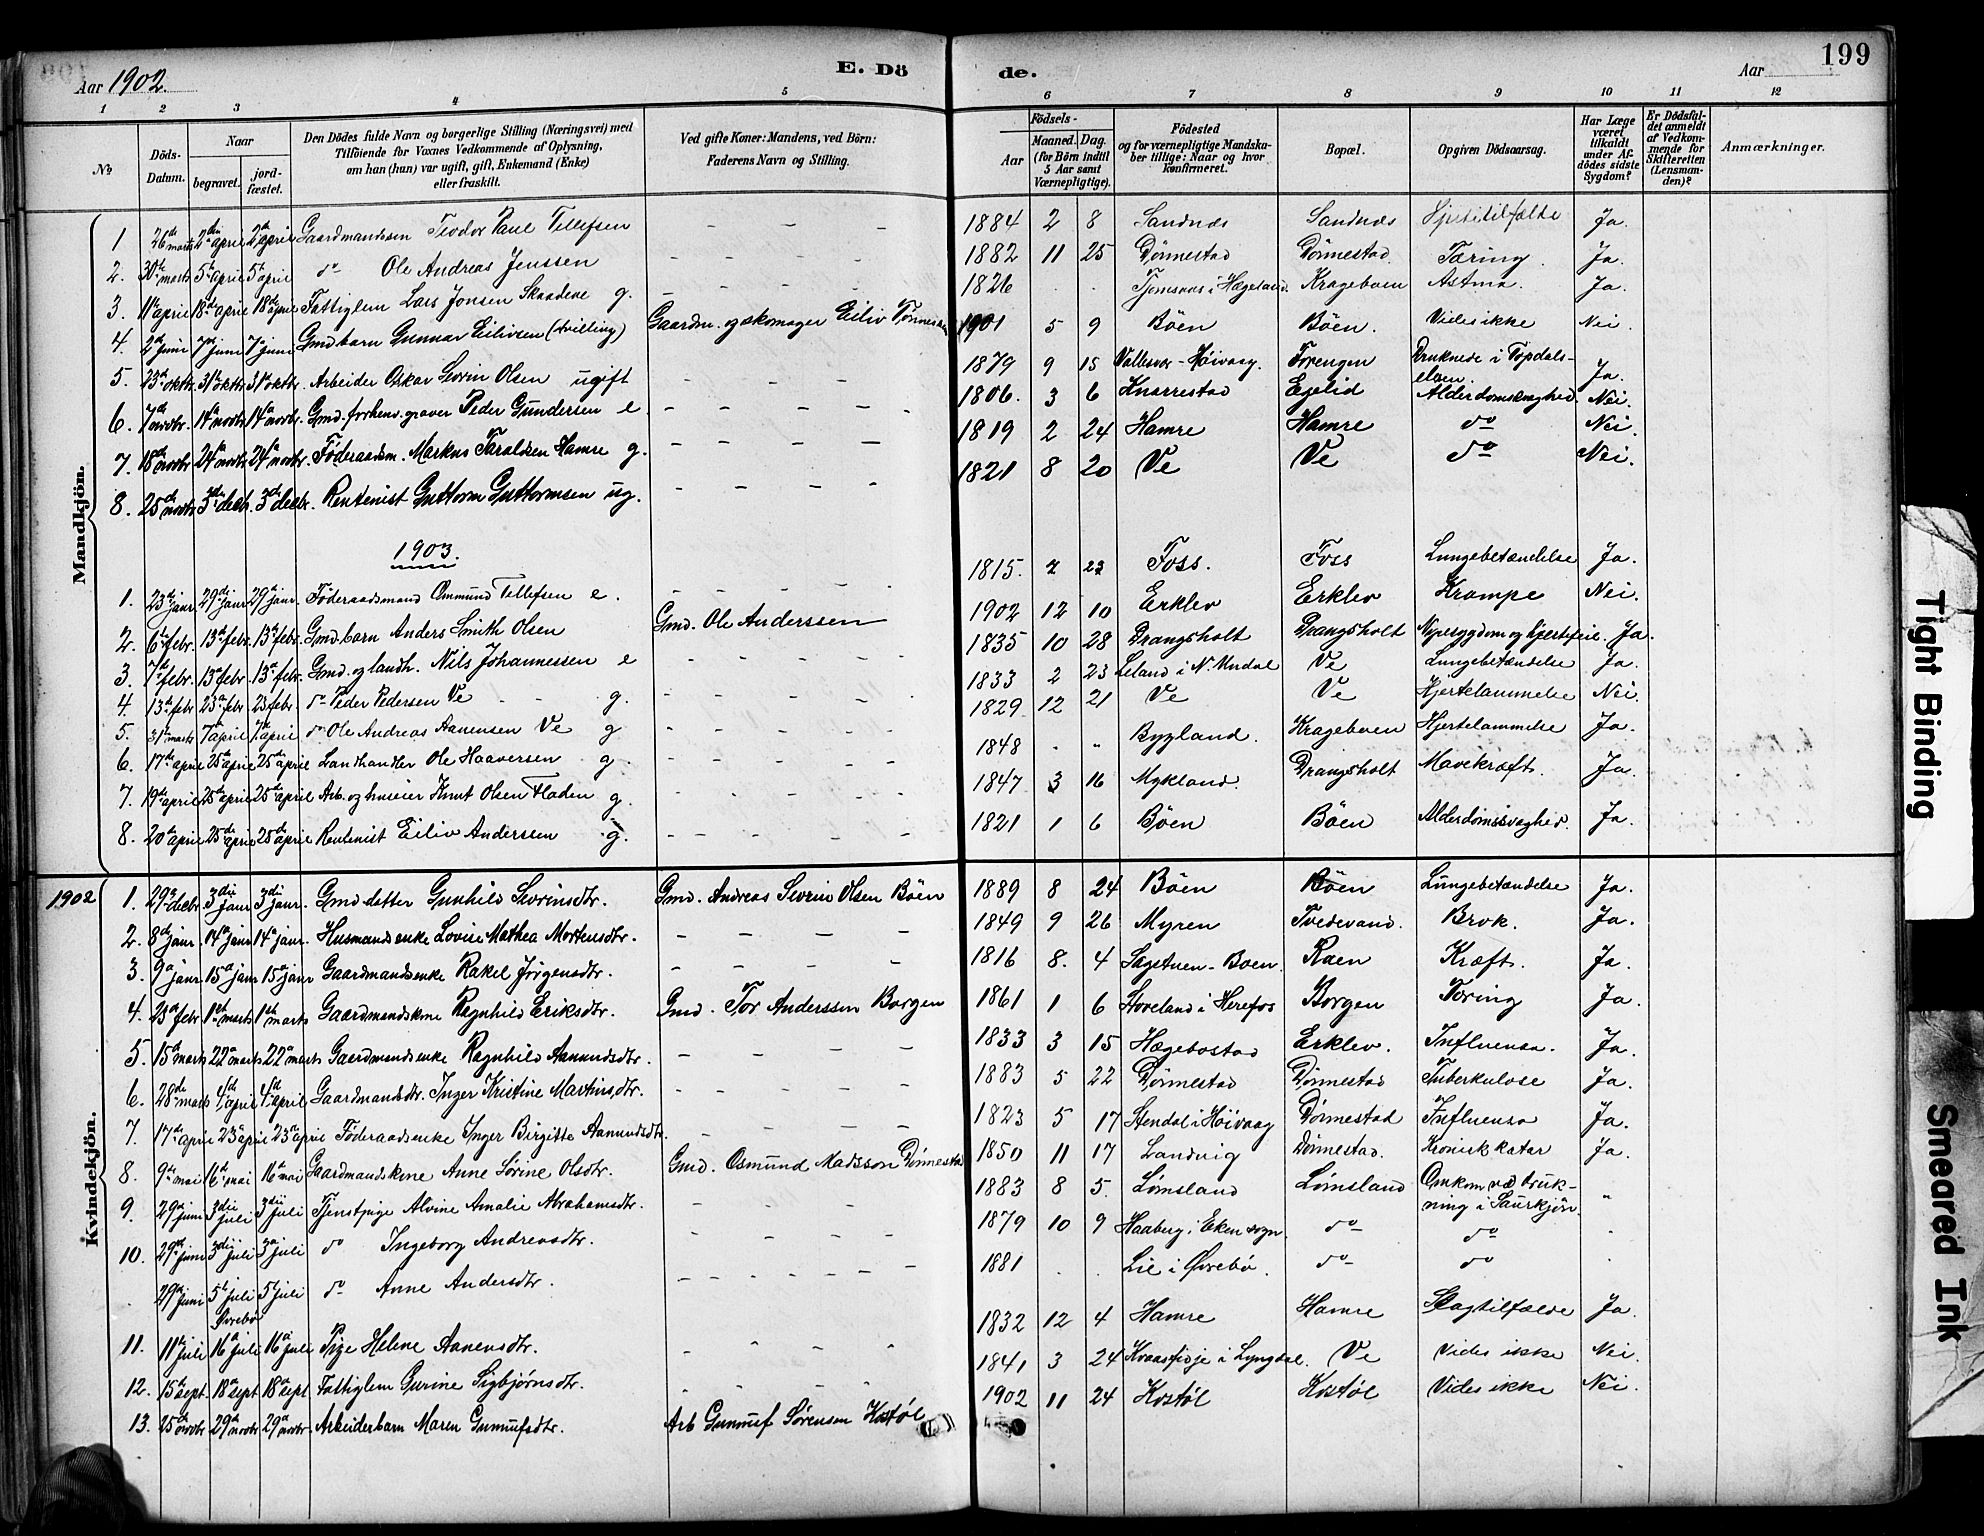 199
Aar 1902.
E. Dö
de.
Aar
1 2 3 4 5 6 7 8 9 10 11 12
№
Döds-Datum.
Naar
begravet.
jord-fæstet.
Den Dödes fulde Navn og borgerlige Stilling (Næringsvei) med
Tilföiende for Voxnes Vedkommende af Oplysning,
om han (hun) var ugift, gift, Enkemand (Enke)
eller fraskilt.
Ved gifte Koner: Mandens, ved Börn:
Faderens Navn og Stilling.
Födsels-
Aar
Maaned. Dag.
(for Börn indtil
5 Aar samt
Værnepligtige).
Födested
og for værnepligtige Mandska-
ber tillige: Naar og hvor
konfirmeret.
Bopæl.
Opgiven Dödsaarsag.
Har Læge
været
tilkaldt
under Af-
dödes sidste
Sygdom?
Er Dödsfal-
det anmeldt
af Vedkom-
mende for
Skifteretten
(Lensman-
den)?
Anmærkninger.
Mandkjön.
1 26de marts 2den april 2den april Gaardmandssøn Teodor Paul Tellefsen - - - - 1884 2 8 Sandnæs Sandnæs Hjertetilfælde Ja.
2. 30te marts 5te april 5te april do Ole Andreas Jenssen - - - - 1882 11 25 Dønnestad Dønnestad. Tæring. Ja.
3. 11te april 18de april 18de april Fattiglem Lars Jonsen Skaadene g. 1826 . . i Hægeland. Krageboen Astma. Ja.
4. 2den juni 7de juni 7de juni Gmd barn Gunnar Eilivsen (tvilling) Gaardm. og skomager Eiliv Tønnessen 1901 5 9 Böen Böen. Vides ikke Nei.
5. 23de oktbr 31te oktbr 31te oktbr. Arbeider Oskar Sevrin Olsen ugift 1879 9 15 Vallesvær-Høivaag. Forengen Druknede i Topdals-elven. Ja.
6. 7de novbr. 14de novbr. 14de novbr. Gmd. forhenv. graver Peder Gundersen e. - - - - 1806. 3 6 Knarrestad Egelid Alderdomssvaghed. Nei.
7. 18de novbr 24de novbr. 24de novbr. Föderaadsm. Markus Taraldsen Hamre g. - - - - 1819 2 24 Hamre Hamre do Nei.
8. 25de novbr 3die decbr. 3die decbr. Rentenist Guttorm Guttormsen ug. - - - - 1821 8 20 Ve Ve do Nei.
1903.
1. 23de janr 29de janr 29de janr. Föderaadsmand Ommund Tellefsen e. - - - - 1815. 2 23 Foss. Foss Lungebetændelse Ja.
2. 6te febr. 13de febr. 13de febr. Gmd. barn Anders Smith Olsen Gmd. Ole Anderssen 1902 12 10 Erklev Erklev Krampe Nei.
3. 7de febr. 13de febr 13de febr. Gmd. og landh. Nils Johannessen e - - - - 1835 10 28 Drangsholt Drangsholt Nyresygdom og hjertefeil. Ja.
4. 13de febr 23de febr 23 febr. do Peder Pedersen Ve g. - - - - 1833 2 23 Leland i N. Undal Ve Lungebetændelse Ja.
5. 31te marts 7de april 7de april do Ole Andreas Aanensen Ve g - - - - 1829 12 21 Ve Ve Hjertelammelse Nei.
6. 17de april 25de april 25de april Landhandler Ole Haaversen g. - - - - 1848 - " Bygland. Krageboen Hjertelammelse Ja.
7. 19de april 25de april 25de april Arb. og huseier Knut Olsen Fladen g. - - - - 1847 3 16 Mykland. Drangsholt Mavekræft. Ja.
8. 20de april 25de april 25de april Rentenist Eiliv Anderssen g. - - - - 1821 1 6 Böen Böen Alderdomssvaghed. Ja.
Kvindekjön.
1902 1. 29de decbr 3die janr 3die janr. Gmd datter Gunhild Sevrinsdtr. Gmd. Andreas Sevrin Olsen Böen 1889 8 24 Böen Böen Lungebetændelse Ja.
2. 8de janr. 14de janr. 14de janr. Husmandsenke Lovise Mathea Mortensdtr. - - - - 1849 9 26 Myren Tvedevand. Brok. Ja.
3. 9de janr. 15de janr 15de janr Gaardmandsenke Rakel Jørgensdtr. - - - - 1816 8. 4 Sagstuen-Boen. Raen Kræft. Ja.
4. 23de febr 1ste marts 1ste marts Gaardmandskone Ragnhild Eriksdtr. Gmd. Tor Anderssen Borgen 1861 1 6 Stoveland i Herefos Borgen Tæring Ja.
5. 15de marts 22de marts 22de marts Gaardmandsenke Ragnhild Aanundsdtr. - - - - 1833 3 15 Hægebostad Erklev. Influensa. Ja.
6. 28de marts 4de april 4de april Gaardmandsdtr. Inger Kristine Martinsdtr. - - - - 1883 5 22 Dønnestad Dønnestad Tuberkulose Ja.
7. 17de april 23de april 23de april Föderaadsenke Inger Birgitte Aanundsdtr. - - - - 1823 5 17 Stendal i Höivaag Dønnestad Influensa Ja.
8. 9de mai 16de mai 16de mai Gaardmandskone Anne Sörine Olsdtr. Gmd. Osmund Madsson Dønnestad 1850 11 17 Landvig Dønnestad. Kronisk katar Ja.
9. 29de juni 3die juli 3die juli Tjenstpige Alvine Amalie Abrahamsdtr. - - - - 1883 8 5. Lømsland Lømsland Omkom ved druk-ning i Saurkjön. "
10. 29de juni 3die juli 3die juli do Ingeborg Andreasdtr. - - - - 1879 10 9 Haaberg i Eken sogn. do do .
29de juni 5te juli 5te juli do Anne Andersdtr. - - - - 1881 . . Lie i Øvrebø. do do .
Øvrebø
11. 11te juli 16de juli 16de juli Pige Helene Aanensdtr. 1832 12 4 Hamre Hamre Slagtilfælde Ja.
12. 15de sept. 18de sept 18de sept. Fattiglem Gurine Sigbjørnsdtr. 1841 3 24 i Lyngdal. Ve Vides ikke Nei.
13. 25de novbr 29de novbr 29de novbr. Arbeiderbarn Maren Gunnufsdtr. Arb Gunnuf Sørensen Kostøl 1902 11 24 Kostøl Kostøl Vides ikke Nei.
Tight Binding
Smeared Ink